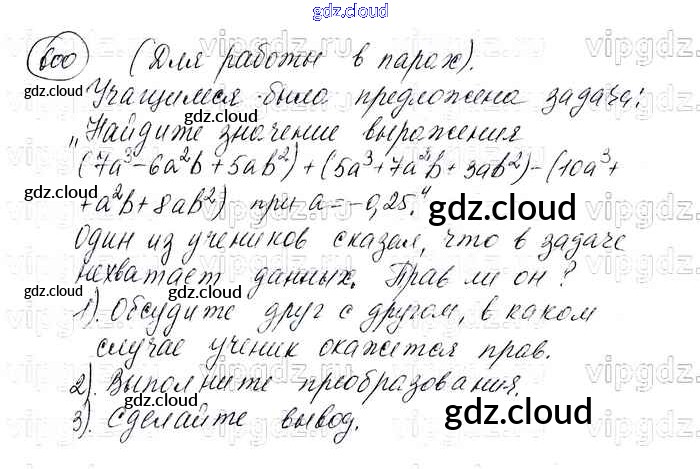 gdz.cloud
600 (Для работы в парах).
Учащимся было предложена задача:
"Найдите значение выражения
(7a³-6a²b+5ab²)+(5a³+7a²b+3ab²)-(10a³+
+a²b+8ab²) при a=-0,25."
Один из учеников сказал, что в задаче
нехватает данных. Прав ли он?
1). Обсудите друг с другом, в каком
случае ученик окажется прав.
2). Выполните преобразования.
3). Сделайте вывод.
gdz.cloud
gdz.cloud
gdz.cloud
gdz.cloud
gdz.cloud
gdz.cloud
gdz.cloud
gdz.cloud